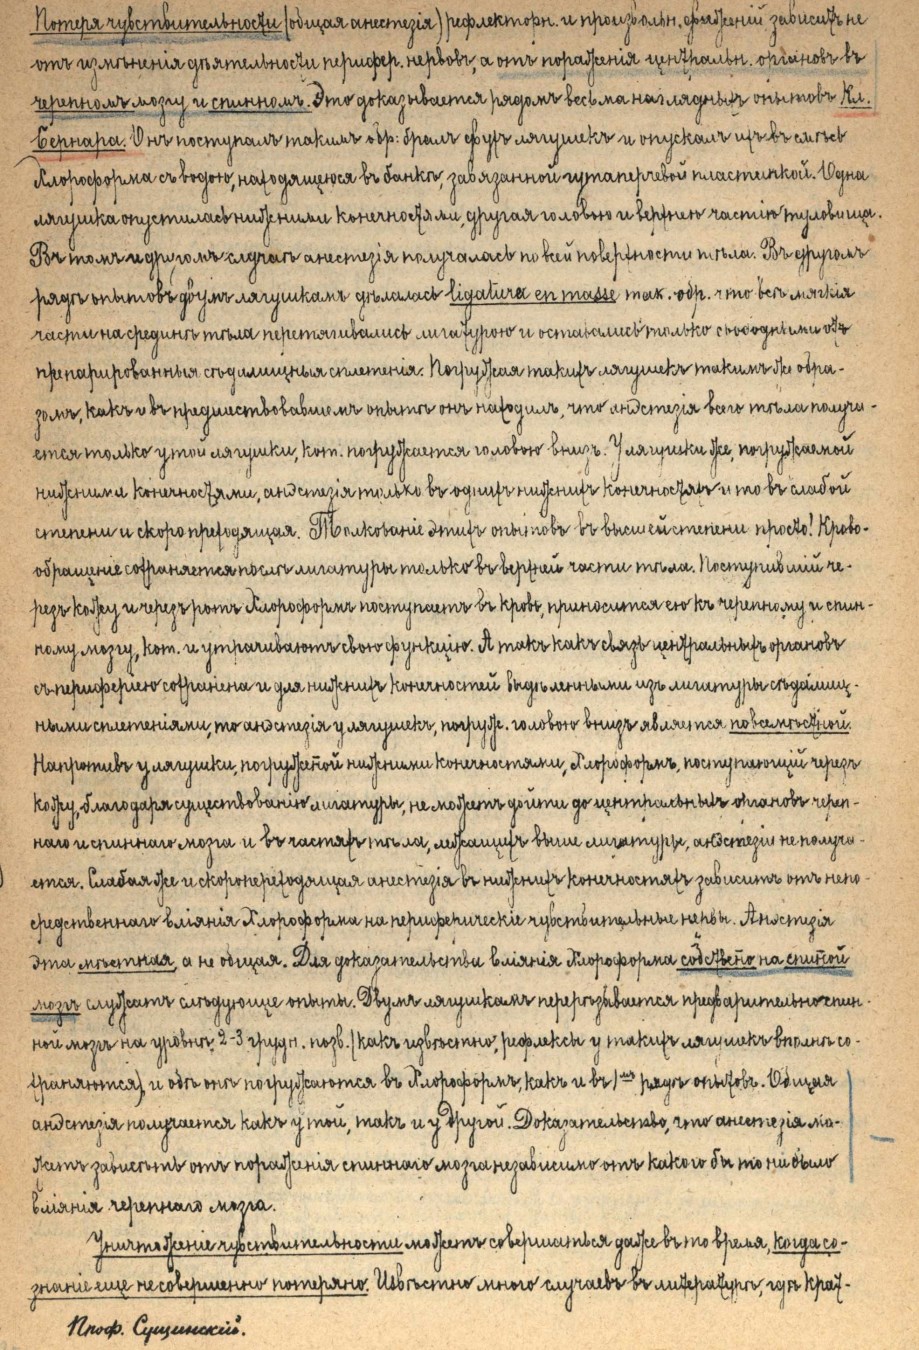 Потеря чувствительности (общая анестезія) рефлекторн. и произвольн. движеній зависитъ не
отъ измѣненія дѣятельности перифер. нервовъ, а отъ пораженія центральн. органовъ въ
черепномъ мозгу и спинномъ. Это доказывается рядомъ весьма наглядныхъ опытовъ Кл.
Бернара. Онъ поступалъ такимъ обр: бралъ двухъ лягушекъ и опускалъ ихъ въ смѣсь
хлороформа съ водою, находящуюся въ банкѣ, завязанной гутаперчевой пластинкой. Одна
лягушка опустилась нижними конечностями, другая головою и верхнею частію туловища.
Въ томъ и другомъ случаѣ анестезія получалась по всей поверхности тѣла. Въ другомъ
рядѣ опытовъ двумъ лягушкамъ дѣлалась ligatura en masse так. обр. что всѣ мягкія
части на срединѣ тѣла перетягивались лигатурою и оставались только свободными от
препарированныя сѣдалищныя сплетенія. Погружая такихъ лягушекъ такимъ же обра-
зомъ, какъ и въ предшествовавшемъ опытѣ онъ находилъ, что анэстезія всего тѣла получа-
ется только у той лягушки, кот. погружается головою внизъ. У лягушки же, погружаемой
нижними конечностями, анэстезія только въ однихъ нижнихъ конечностяхъ и то въ слабой
степени и скоро преходящая. Толкованіе этихъ опытовъ въ высшей степени просто! Крово-
обращеніе сохраняется послѣ лигатуры только въ верхней части тѣла. Поступившій че-
резъ кожу и черезъ ротъ хлороформъ поступаетъ въ кровь, приносится ею къ черепному и спин-
ному мозгу, кот. и утрачиваютъ свою функцію. А такъ какъ связь центральныхъ органовъ
съ периферіею сохранена и для нижнихъ конечностей выдѣленными изъ лигатуры сѣдалищ-
ными сплетеніями, то анэстезія у лягушекъ, погруж. головою внизъ является повсемѣстной.
Напротивъ у лягушки, погруженой нижними конечностями, хлороформъ, поступающій черезъ
кожу, благодаря существованію лигатуры, не можетъ дойти до центральныхъ органовъ череп-
наго и спиннаго мозга и въ частяхъ тѣла, лежащихъ выше лигатуры, анэстезіи не получа-
ется. Слабая же и скоропереходящая анестезія въ нижнихъ конечностяхъ зависитъ отъ непо-
средственнаго вліянія хлороформа на периферическіе чувствительные нервы. Анэстезія
эта мѣстная, а не общая. Для доказательства вліянія хлороформа собственно на спиной
мозгъ служатъ слѣдующіе опыты. Двумъ лягушкамъ перерѣзывается предварительно спин-
ной мозгъ на уровнѣ 2-3 грудн. позв. (какъ извѣстно, рефлексы у такихъ лягушекъ вполнѣ со-
храняются), и обѣ онѣ погружаются въ хлороформъ, какъ и въ 1мъ рядѣ опытовъ. Общая
анэстезія получается какъ у той, такъ и у другой. Доказательство, что анестезія мо-
жетъ зависѣть отъ пораженія спиннаго мозга независимо отъ какого бы то ни было
вліянія черепнаго мозга.
Уничтоженіе чувствительности можетъ совершаться даже въ то время, когда со-
знаніе еще не совершенно потеряно. Извѣстно много случаевъ въ литературѣ, гдѣ крат-
Проф. Сущинскій.